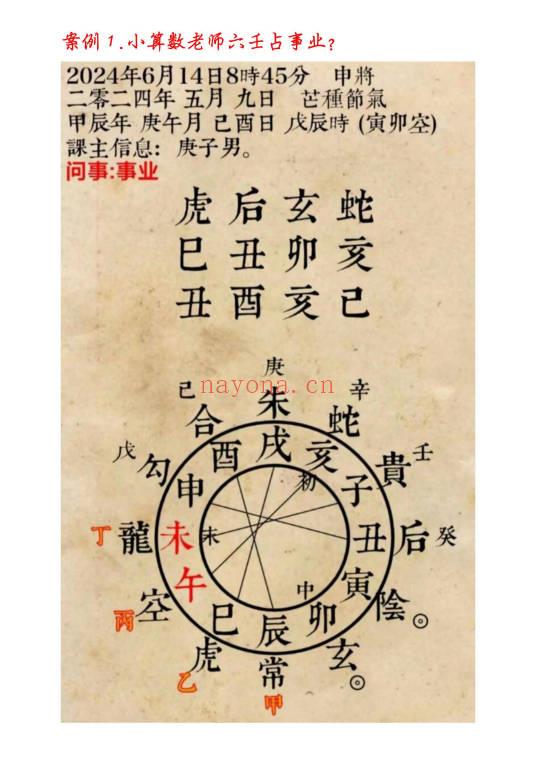 案例1.小算数老师六壬占事业？
2024年6月14日8時45分 申將
二零二四年 五月 九日 芒種節氣
甲辰年 庚午月 己酉日 戊辰時 (寅卯空)
課主信息： 庚子男。
问事:事业
虎 后 玄 蛇
巳 丑 卯 亥
丑 酉 亥 己
庚
己 朱 辛
合 戌 蛇
戊 酉 亥 壬
勾 申 初 子 貴
丁 龍 未 末 丑 后 癸
午 中 寅
丙 空 巳 辰 卯 陰
虎 常 玄
乙 甲
nayona.cn